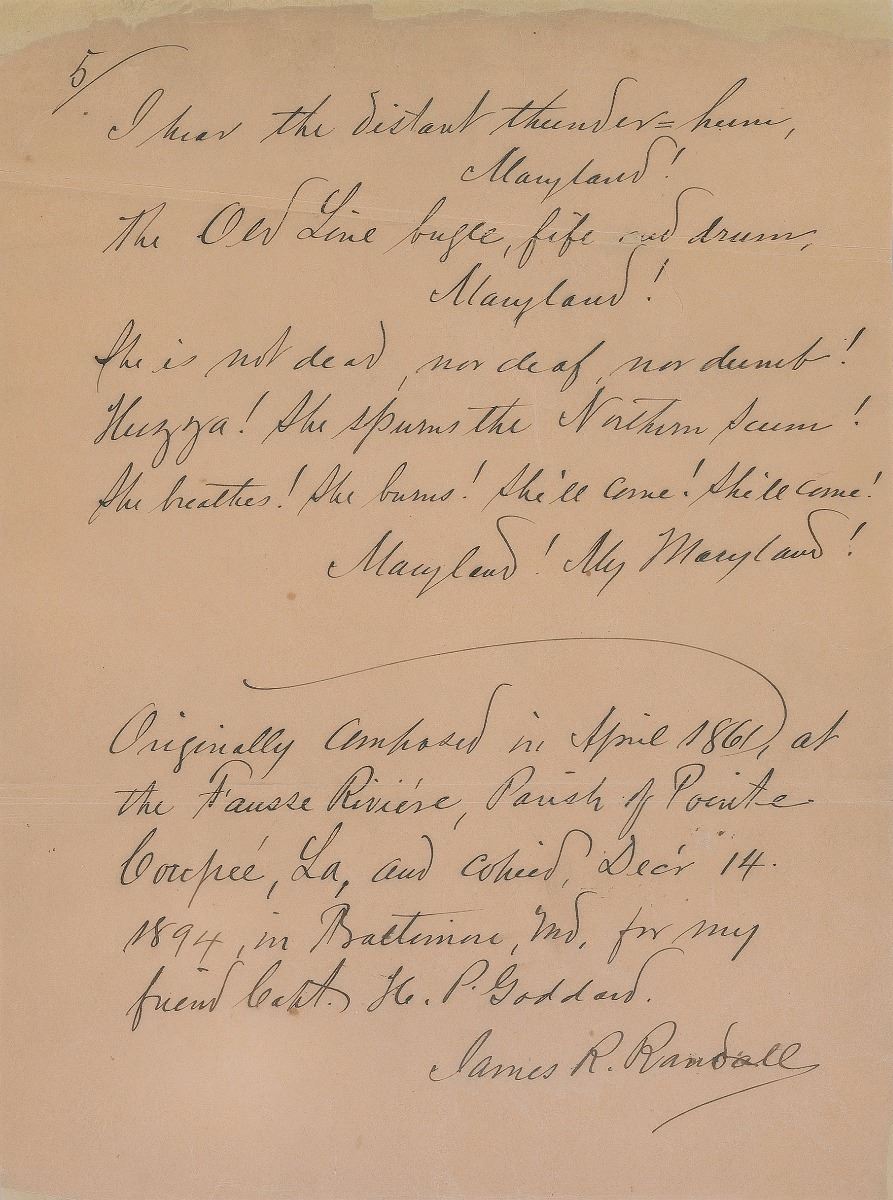 5/
I hear the distant thunder=hum,
Maryland!
The Old Line bugle, fife and drum,
Maryland!
She is not dead, nor deaf, nor dumb!
Huzza! She spurns the Northern scum!
She breathes! She burns! She'll come! She'll come!
Maryland! My Maryland!
Originally composed in April 1861, at
the Fausse Riviére, Parish of Pointe
Coupeé, La, and copied, Dec'r 14.
1894, in Baltimore, Md, for my
friend Capt. H. P. Goddard.
James R. Randall